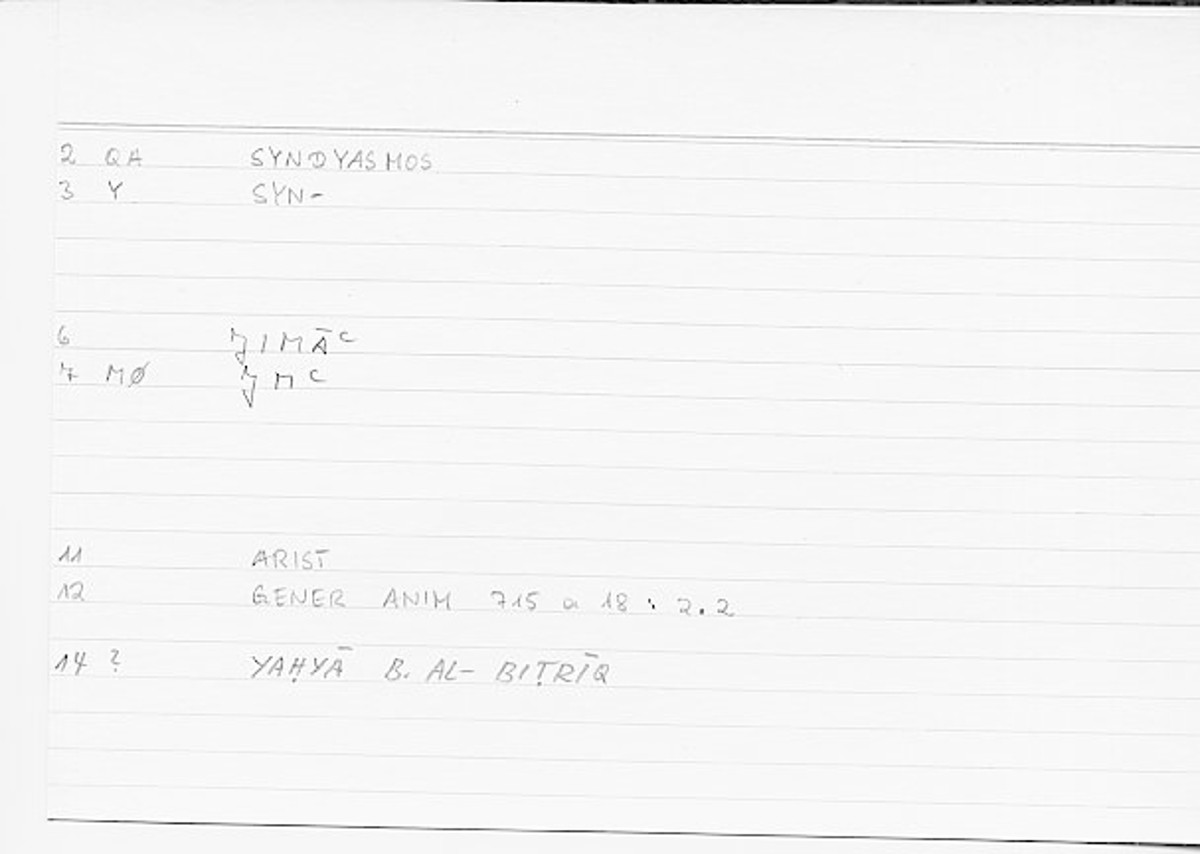 2 QA SYNDYASMOS
3 Y SYN-
6 ǦIMĀʿ
7 MØ ǦMʿ
11 ARIST
12 GENER ANIM 715 a 18 : 2.2
14 ? YAḤYĀ B. AL-BIṬRĪQ